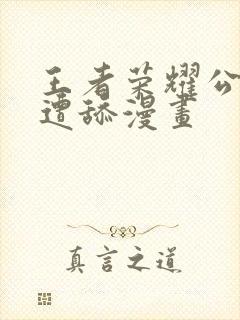 王者荣耀公
遭舔漫畫
真言之道